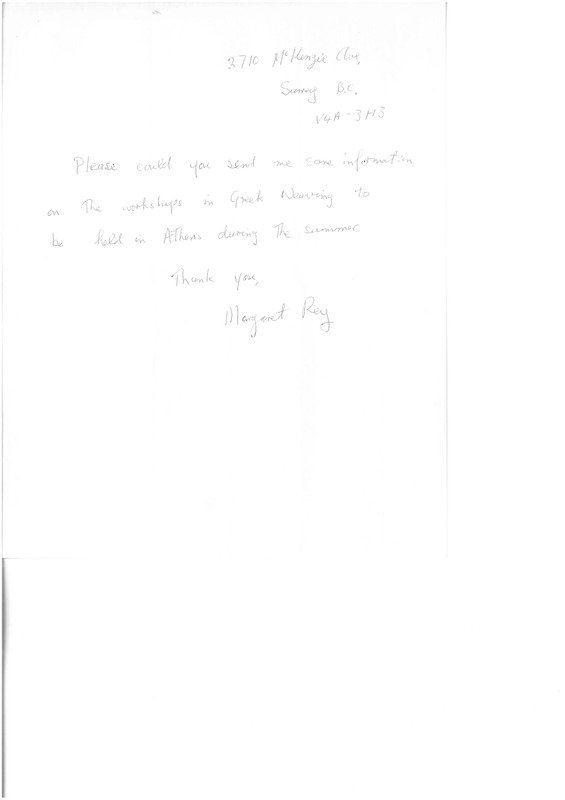 2710 McKenzie Ave,
Surrey B.C.
V4A-3H5
Please could you send me some information
on The workshops in Greek Weaving to
be held in Athens during The summer.
Thank you,
Margaret Rey